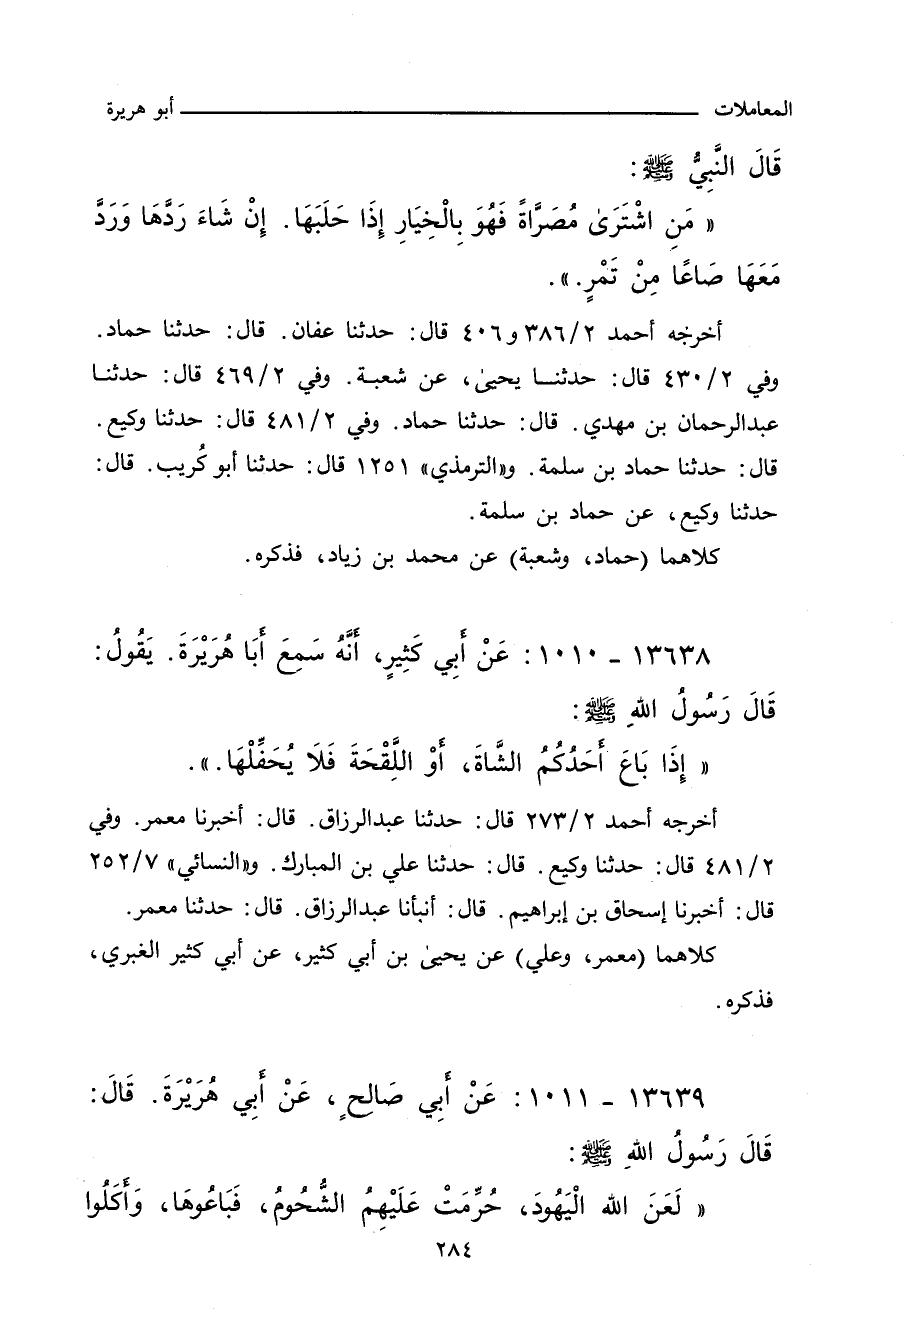 المعاملات ــــــــــــــــــــ أبو هريرة
قَالَ النَّبِيُّ ﷺ:
« مَنِ اشْتَرَىٰ مُصَرَّاةً فَهُوَ بِالْخِيَارِ إِذَا حَلَبَهَا. إِنْ شَاءَ رَدَّهَا وَرَدَّ
مَعَهَا صَاعًا مِنْ تَمْرٍ.».
أخرجه أحمد ٣٨٦/٢ و٤٠٦ قال: حدثنا عفان. قال: حدثنا حماد.
وفي ٤٣٠/٢ قال: حدثنـــا يحيىٰ، عن شعبـة. وفي ٤٦٩/٢ قال: حدثنـا
عبدالرحمان بن مهدي. قال: حدثنا حماد. وفي ٤٨١/٢ قال: حدثنا وكيع.
قال: حدثنا حماد بن سلمة. و«الترمذي» ١٢٥١ قال: حدثنا أبو كُريب. قال:
حدثنا وكيع، عن حماد بن سلمة.
كلاهما (حماد، وشعبة) عن محمد بن زياد، فذكره.
١٣٦٣٨ - ١٠١٠: عَنْ أَبِي كَثِيرٍ، أَنَّهُ سَمِعَ أَبَا هُرَيْرَةَ. يَقُولُ:
قَالَ رَسُولُ اللهِ ﷺ:
« إِذَا بَاعَ أَحَدُكُمُ الشَّاةَ، أَوْ اللَّقْحَةَ فَلَا يُحَفِّلْهَا.».
أخرجه أحمد ٢٧٣/٢ قال: حدثنا عبدالرزاق. قال: أخبرنا معمر. وفي
٤٨١/٢ قال: حدثنا وكيع. قال: حدثنا علي بن المبارك. و«النسائي» ٢٥٢/٧
قال: أخبرنا إسحاق بن إبراهيم. قال: أنبأنا عبدالرزاق. قال: حدثنا معمر.
كلاهما (معمر، وعلي) عن يحيىٰ بن أبي كثير، عن أبي كثير الغبري،
فذكره.
١٣٦٣٩ - ١٠١١: عَنْ أَبِي صَالِحٍ، عَنْ أَبِي هُرَيْرَةَ. قَالَ:
قَالَ رَسُولُ اللهِ ﷺ:
« لَعَنَ الله الْيَهُودَ، حُرِّمَتْ عَلَيْهِمُ الشُّحُومُ، فَبَاعُوهَا، وَأَكَلُوا
٢٨٤